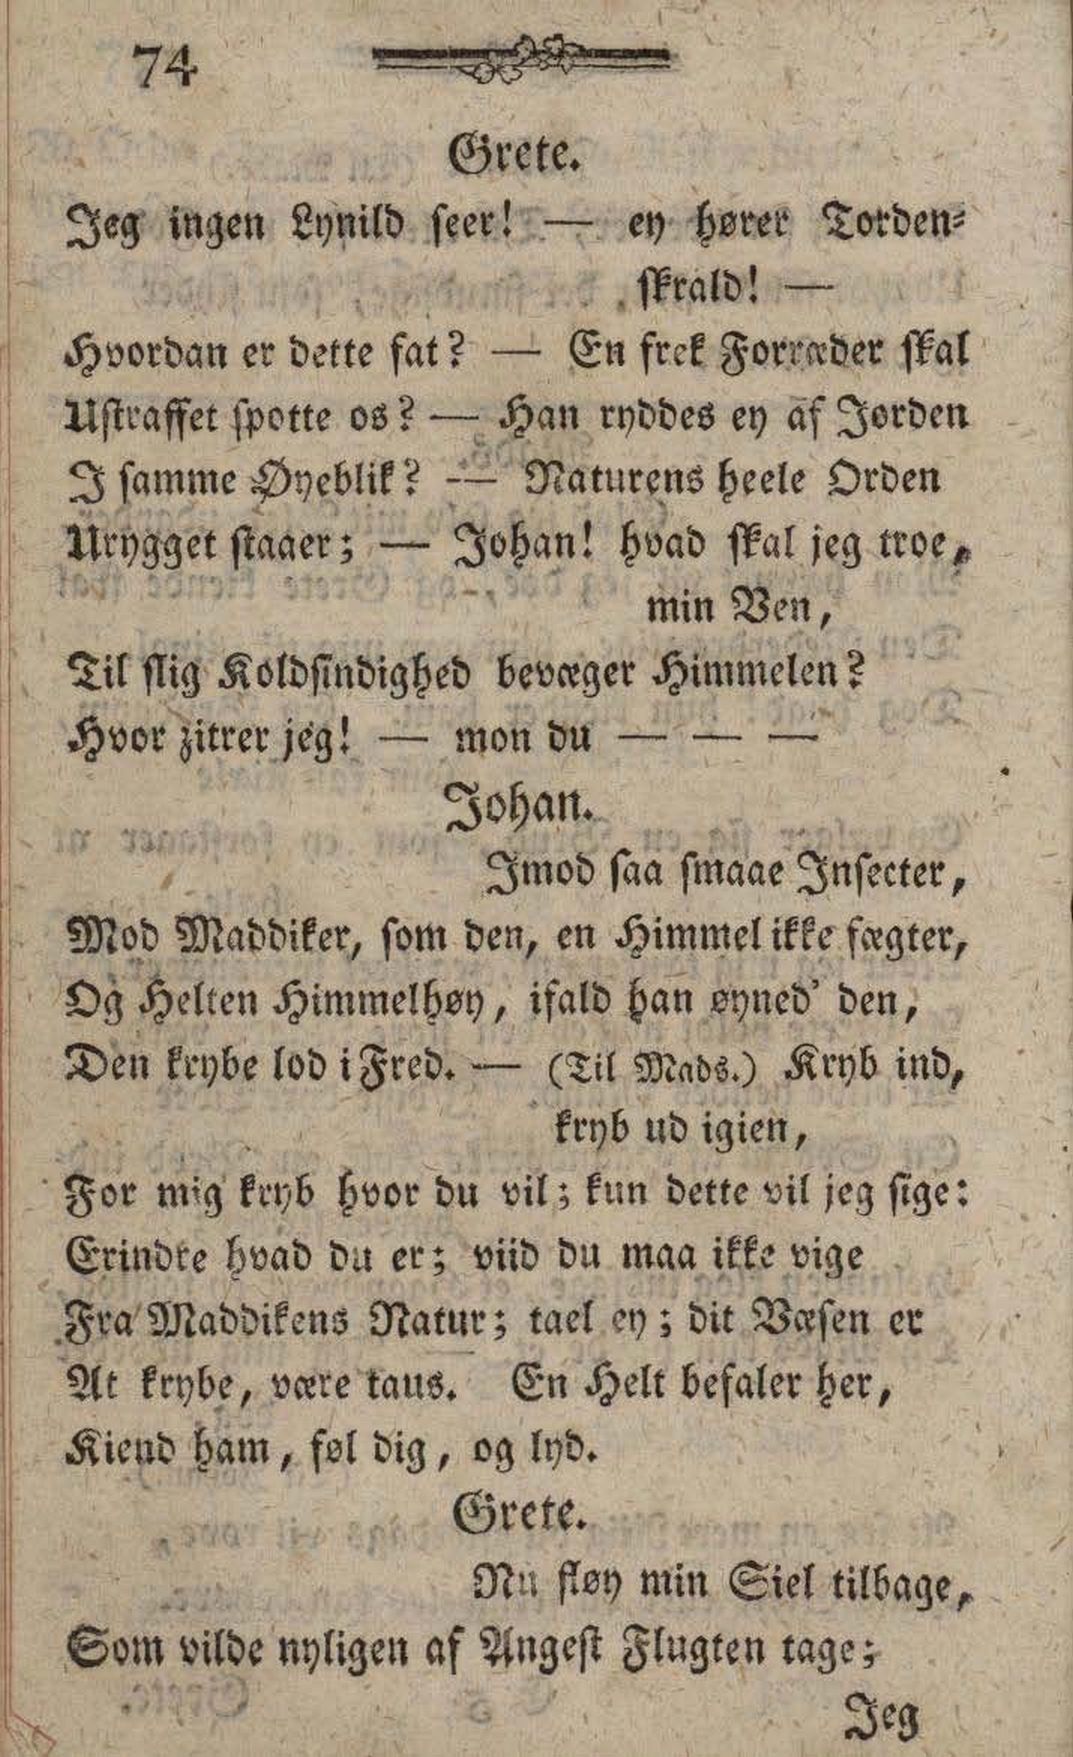 74
Grete.
Jeg ingen Lynild seer! — ey hører Torden-
skrald! —
Hvordan er dette fat? — En frek Forræder skal
Ustraffet spotte os? — Han ryddes ey af Jorden
I samme Øyeblik? — Naturens heele Orden
Urygget staaer; — Johan! hvad skal jeg troe,
min Ven,
Til slig Koldsindighed bevæger Himmelen?
Hvor zitrer jeg! — mon du — — —
Johan.
Imod saa smaae Insecter,
Mod Maddiker, som den, en Himmel ikke fægter,
Og Helten Himmelhøy, ifald han øyned' den,
Den krybe lod i Fred. — (Til Mads.) Kryb ind,
kryb ud igien,
For mig kryb hvor du vil; kun dette vil jeg sige:
Erindre hvad du er; viid du maa ikke vige
Fra Maddikens Natur; tael ey; dit Væsen er
At krybe, være taus. En Helt befaler her,
Kiend ham, føl dig, og lyd.
Grete.
Nu fløy min Siel tilbage,
Som vilde nyligen af Angest Flugten tage;
Jeg